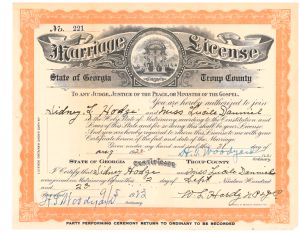 No. 221
Marriage License
State of Georgia Troup County
TO ANY JUDGE, JUSTICE OF THE PEACE, OR MINISTER OF THE GOSPEL.
You are hereby authorized to join
Sidney L Hodge and Miss Lucile Danniel
in the Holy State of Matrimony according to the Constitution and
Laws of this State and for so doing this shall be your License
And you are hereby required to return this License to me with your
Certificate hereon of the fact and date of the Marriage.
Given under my hand and seal this day of
Aug
STATE OF GEORGIA Certificate TROUP COUNTY
I Certify that Sidney Hodge and Miss Lucile Danniel
were joined in Matrimony by me this 2 day of Sept
Nineteen Hundred and 23
W. L. Hardy
PARTY PERFORMING CEREMONY RETURN TO ORDINARY TO BE RECORDED